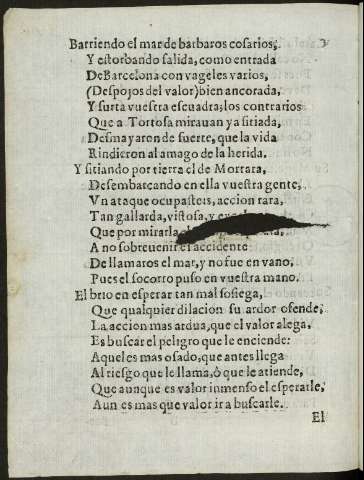 Barriendo el mar de barbaros cosarios,
Y estorbando salida, como entrada
De Barcelona con vageles varios,
(Despojos del valor) bien ancorada,
Y surta vuestra escuadra; los contrarios
Que a Tortosa mirauan ya sitiada,
Desmayaron de suerte, que la vida
Rindieron al amago de la herida.
Y sitiando por tierra el de Mortara,
Desembarcando en ella vuestra gente,
Vn ataque ocupasteis, accion rara,
Tan gallarda, vistosa, y
Que por mirarla
A no sobreuenir el accidente
De llamaros el mar, y no fue en vano,
Pues el socorro puso en vuestra mano.
El brio en esperar tan mal sosiega,
Que qualquier dilacion su ardor ofende,
La accion mas ardua, que el valor alega,
Es buscar el peligro que le enciende:
Aquel es mas osado, que antes llega
Al riesgo que le llama, ò que le atiende,
Que aunque es valor inmenso el esperarle,
Aun es mas que valor ir a buscarle.
El